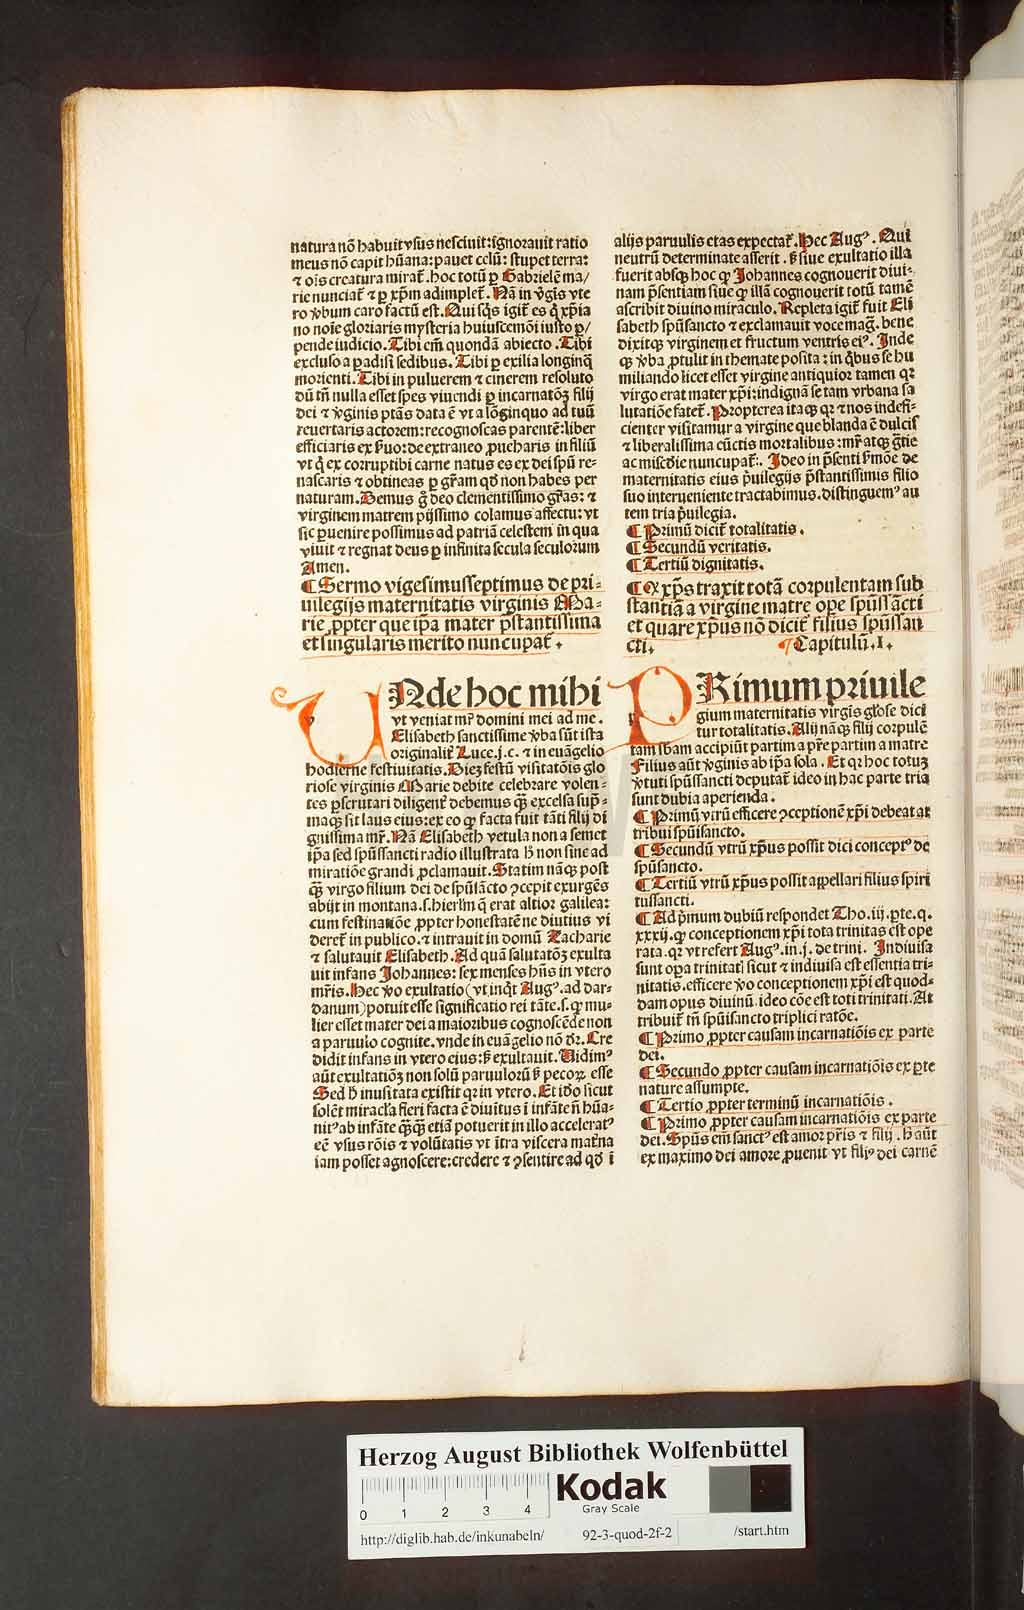 natura nō habuit vsus nesciuit: ignorauit ratio
meus nō capit hūana: pauet celū: stupet terra:
⁊ oīs creatura mirat̄. hoc totū ꝑ Gabrielē ma/
rie nunciat̄ ⁊ ꝑ xp̄m adimplet̄. Nā in v̄gis vte
ro v̄bum caro factū est. Qui sq̄s igit̄ es q̄ xp̄ia
no noīe gloriaris mysteria huiuscemōi iusto ꝑ/
pende iudicio. Tibi em̄ quondā abiecto. Tibi
excluso a ꝑadisi sedibus. Tibi ꝑ exilia longinq̄
morienti. Tibi in puluerem ⁊ cinerem resoluto
dū tn̄ nulla esset spes viuendi ꝑ incarnatōꝫ filij
dei ⁊ v̄ginis ptās data ē vt a lōginquo ad tuū
reuertaris actorem: recognoscas parentē: liber
efficiaris ex ẜuo: de extraneo ꝓucharis in filiū
vt q̄ ex corruptibi carne natus es ex dei spū re-
nascaris ⁊ obtineas ꝑ gr̄am qd̄ non habes per
naturam. Demus g̊ deo clementissimo gr̄as: ⁊
virginem matrem pijssimo colamus affectu: vt
sic ꝑuenire possimus ad patriā celestem in qua
viuit ⁊ regnat deus ꝑ infinita secula seculorum
Amen.
¶ Sermo vigesimusseptimus de pri-
uilegijs maternitatis virginis Ma-
rie ꝓpter que ip̄a mater p̄stantissima
et singularis merito nuncupat̄.
UNde hoc mihi
vt veniat mr̄ domini mei ad me.
Elisabeth sanctissime v̄ba sūt ista
originalit̄ Luce.j.c. ⁊ in euāgelio
hodierne festiuitatis. Diez festū visitatōis glo
riose virginis Marie debite celebrare volen-
tes ꝑscrutari diligent̄ debemus q̄ꝫ excelsa sup̄-
maqꝫ sit laus eius: ex eo ꝙ facta fuit tāti filij di
gnissima mr̄. Nā Elisabeth vetula non a semet
ip̄a sed spūssancti radio illustrata hꝫ non sine ad
miratiōe grandi ꝓclamauit. Statim nāqꝫ post
q̄ꝫ virgo filium dei de spūsācto ꝯcepit exurgēs
abijt in montana.s. hierlm̄ q̄ erat altior galilea:
cum festinatiōe ꝓpter honestatē ne diutius vi
deret̄ in publico. ⁊ intrauit in domū Zacharie
⁊ salutauit Elisabeth. Ad quā salutatōꝫ exulta
uit infans Johannes: sex menses hn̄s in vtero
mr̄is. Hec v̄o exultatio (vt inq̄t Augꝰ. ad dar-
danum) potuit esse significatio rei tāte.s. ꝙ mu-
lier esset mater dei a maioribus cognoscēde non
a paruulo cognite. vnde in euāgelio nō dr̄. Cre
didit infans in vtero eius: ẜ exultauit. Uidimꝰ
aūt exultatiōꝫ non solū paruulorū ẜ pecoꝝ esse
Sed hꝫ inusitata existit qꝛ in vtero. Et idō sicut
solēt miracl̄a fieri facta ē diuītus ī infāte n̄ hūa-
nitꝰ ab infāte q̄ꝫq̄ꝫ etiā potuerit in illo acceleratꝰ
eē vsus rōis ⁊ volūtatis vt ītra viscera mat̄na
iam posset agnoscere: credere ⁊ ꝯsentire ad qd̄ ī
alijs paruulis etas expectat̄. Hec Augꝰ. Qui
neutrū determinate asserit. ẜ siue exultatio illa
fuerit absqꝫ hoc ꝙ Johannes cognouerit diui-
nam p̄sentiam siue ꝙ illā cognouerit totū tamē
ascribit diuino miraculo. Repleta igit̄ fuit Eli
sabeth spūsancto ⁊ exclamauit voce mag̃. bene
dixitqꝫ virginem et fructum ventris eiꝰ. Inde
qꝫ v̄ba ꝓtulit in themate posita: in q̄bus se hu
miliando licet esset virgine antiquior tamen qꝛ
virgo erat mater xp̄i: indignā se tam vrbana sa
lutatiōe fatet̄. Propterea itaqꝫ qꝛ ⁊ nos indefi-
cienter visitamur a virgine que blanda ē dulcis
⁊ liberalissima cūctis mortalibus: mr̄ atqꝫ gr̄tie
ac mīsc̄die nuncupat̄. Ideo in p̄senti ẜmōe de
maternitatis eius p̄uilegijs p̄stantissimis filio
suo interueniente tractabimus. distinguemꝰ au
tem tria p̄uilegia.
¶ Primū dicit̄ totalitatis.
¶ Secundū veritatis.
¶ Tertiū dignitatis.
¶ Qꝙ xp̄s traxit totā corpulentam sub
stantiā a virgine matre oꝑe spūssācti
et quare xp̄us nō dicit̄ filius spūssan
cti. ¶ Capitulū .I.
PRimum priuile
gium maternitatis virgīs gl̄iose dici
tur totalitatis. Alij nāqꝫ filij corpulē
tam sb̄am accipiūt partim a pr̄e partim a matre
Filius aūt v̄ginis ab ip̄a sola. Et qꝛ hoc totuꝫ
v̄tuti spūssancti deputat̄ ideo in hac parte tria
sunt dubia aperienda.
¶ Primū vtrū efficere ꝯceptionē xp̄i debeat at
tribui spūisancto.
¶ Secundū vtrū xp̄us possit dici conceptꝰ de
spūsancto.
¶ Tertiū vtrū xp̄us possit appellari filius spiri
tussancti.
¶ Ad p̄mum dubiū respondet Tho.iij.ꝑte.q.
xxxij. ꝙ conceptionem xp̄i tota trinitas est ope
rata. qꝛ vt refert Augꝰ. in.j. de trini. Indiuisa
sunt oꝑa trinitatī sicut ⁊ indiuisa est essentia tri-
nitatis. efficere v̄o conceptionem xp̄i est quod-
dam opus diuinū. ideo cōe est toti trinitati. At
tribuit̄ tn̄ spūisancto triplici ratōe.
¶ Primo ꝓpter causam incarnatiōis ex parte
dei.
¶ Secundo ꝓpter causam incarnatiōis ex ꝑte
nature assumpte.
¶ Tertio ꝓpter terminū incarnatiōis.
¶ Primo ꝓpter causam incarnatiōis ex parte
dei. Spūs em̄ sanctꝰ est amor pr̄is ⁊ filij. hꝫ aūt
ex maximo dei amore ꝓuenit vt filiꝰ dei carnē
Herzog August Bibliothek Wolfenbüttel
0 1 2 3 4
Kodak
Gray Scale
http://diglib.hab.de/inkunabeln/ 92-3-quod-2f-2 /start.htm